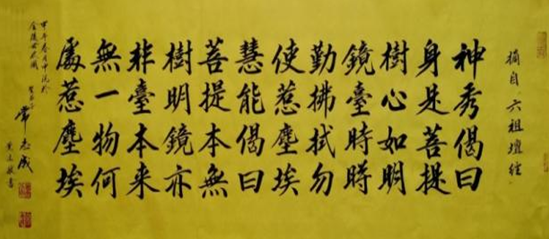 摘自 六祖壇经
神秀偈曰
身是菩提
樹心如明
鏡臺時時
勤拂拭勿
使惹塵埃
慧能偈曰
菩提本無
樹明鏡亦
非臺本来
無一物何
處惹塵埃
甲午春月中浣於
金陵
常志成
敬書